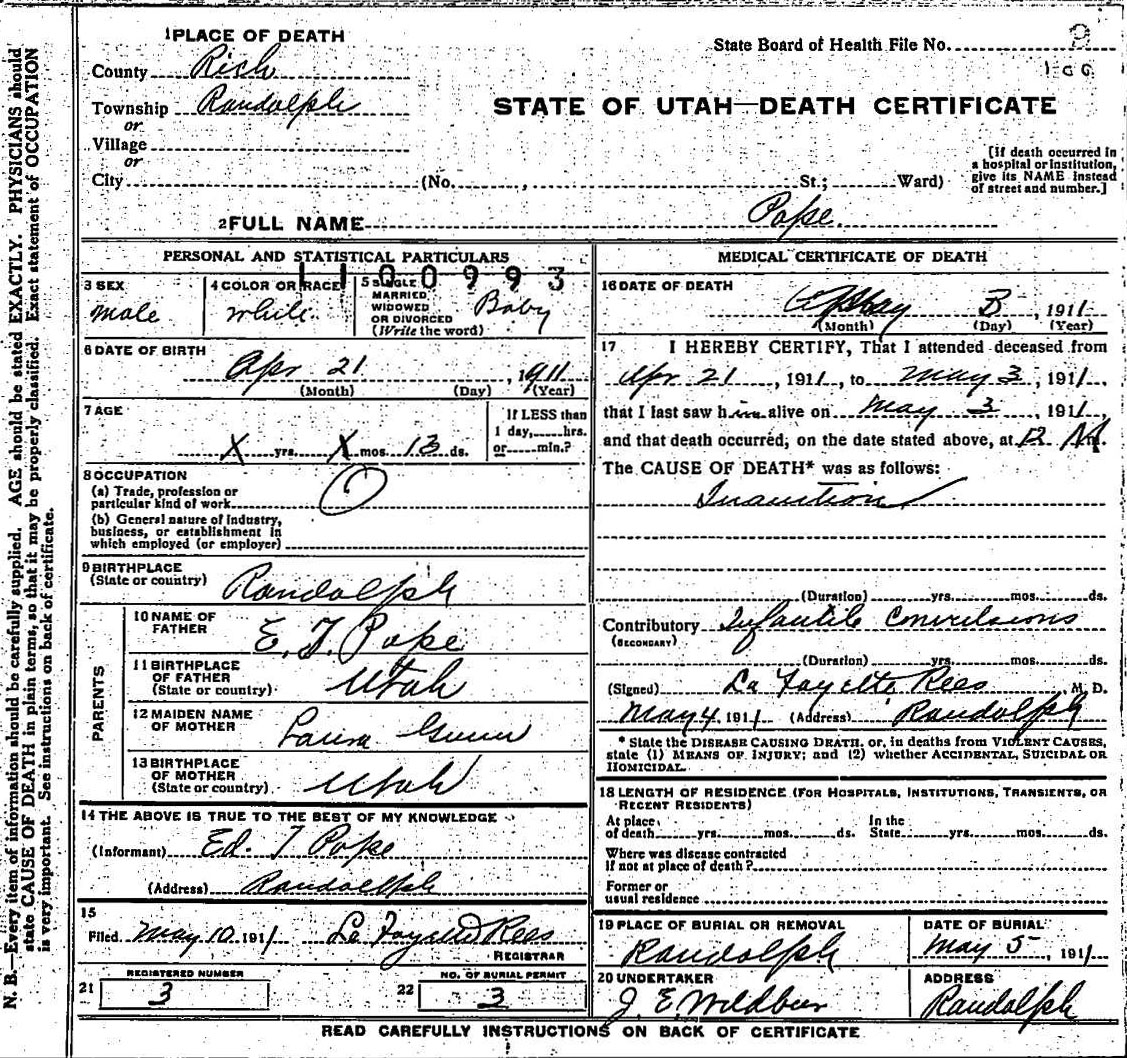 N. B.—Every item of information should be carefully supplied. AGE should be stated EXACTLY. PHYSICIANS should
state CAUSE OF DEATH in plain terms, so that it may be properly classified. Exact statement of OCCUPATION
is very important. See instructions on back of certificate.
1 PLACE OF DEATH
State Board of Health File No. 9
County Rich
Township Randolph
or
STATE OF UTAH—DEATH CERTIFICATE
Village
or
City (No. , St.; Ward)
[If death occurred in
a hospital or institution,
give its NAME instead
of street and number.]
2 FULL NAME Pope.
PERSONAL AND STATISTICAL PARTICULARS
1100993
3 SEX
male
4 COLOR OR RACE
white
5 SINGLE
MARRIED
WIDOWED
OR DIVORCED
(Write the word)
Baby
6 DATE OF BIRTH
Apr 21, 1911
(Month) (Day) (Year)
7 AGE
X yrs. X mos. 13 ds.
If LESS than
1 day, hrs.
or min.?
8 OCCUPATION
(a) Trade, profession or
particular kind of work O
(b) General nature of industry,
business, or establishment in
which employed (or employer)
9 BIRTHPLACE
(State or country) Randolph
PARENTS
10 NAME OF
FATHER E. T. Pope
11 BIRTHPLACE
OF FATHER
(State or country) Utah
12 MAIDEN NAME
OF MOTHER Laura Gunn
13 BIRTHPLACE
OF MOTHER
(State or country) Utah
14 THE ABOVE IS TRUE TO THE BEST OF MY KNOWLEDGE
(Informant) Ed. T Pope
(Address) Randolph
15
Filed May 10 1911 La Fayette Rees
REGISTRAR
REGISTERED NUMBER
21 3
NO. OF BURIAL PERMIT
22 3
MEDICAL CERTIFICATE OF DEATH
16 DATE OF DEATH
May 3, 1911
(Month) (Day) (Year)
17 I HEREBY CERTIFY, That I attended deceased from
Apr 21, 1911, to May 3, 1911,
that I last saw him alive on May 3, 1911,
and that death occurred, on the date stated above, at 12 M.
The CAUSE OF DEATH* was as follows:
Inanition
(Duration) yrs. mos. ds.
Contributory Infantile Convulsions
(SECONDARY)
(Duration) yrs. mos. ds.
(Signed) La Fayette Rees M. D.
May 4, 1911 (Address) Randolph
* State the DISEASE CAUSING DEATH, or, in deaths from VIOLENT CAUSES,
state (1) MEANS OF INJURY; and (2) whether ACCIDENTAL, SUICIDAL OR
HOMICIDAL.
18 LENGTH OF RESIDENCE (FOR HOSPITALS, INSTITUTIONS, TRANSIENTS, OR
RECENT RESIDENTS)
At place In the
of death yrs. mos. ds. State yrs. mos. ds.
Where was disease contracted
if not at place of death?
Former or
usual residence
19 PLACE OF BURIAL OR REMOVAL
Randolph
DATE OF BURIAL
May 5, 1911
20 UNDERTAKER
J. E. Wildbur
ADDRESS
Randolph
READ CAREFULLY INSTRUCTIONS ON BACK OF CERTIFICATE